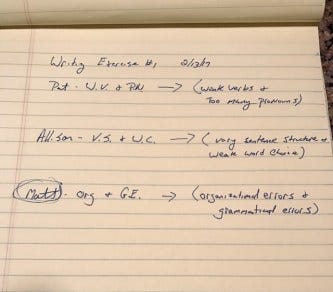 Writing Exercise #1 2/13/17
Pat - W.V. & PN → (weak verbs &
Too Many pronouns)
Allison - V.S. & W.C. → (vary sentence structure &
weak word choice)
Matt - org & G.E. → (organizational errors &
grammatical errors)